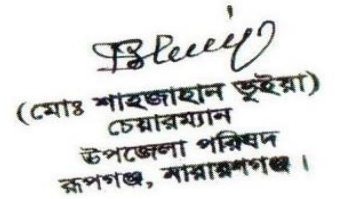 (মোঃ শাহজাহান ভূইয়া)
চেয়ারম্যান
উপজেলা পরিষদ
রূপগঞ্জ, নারায়ণগঞ্জ।